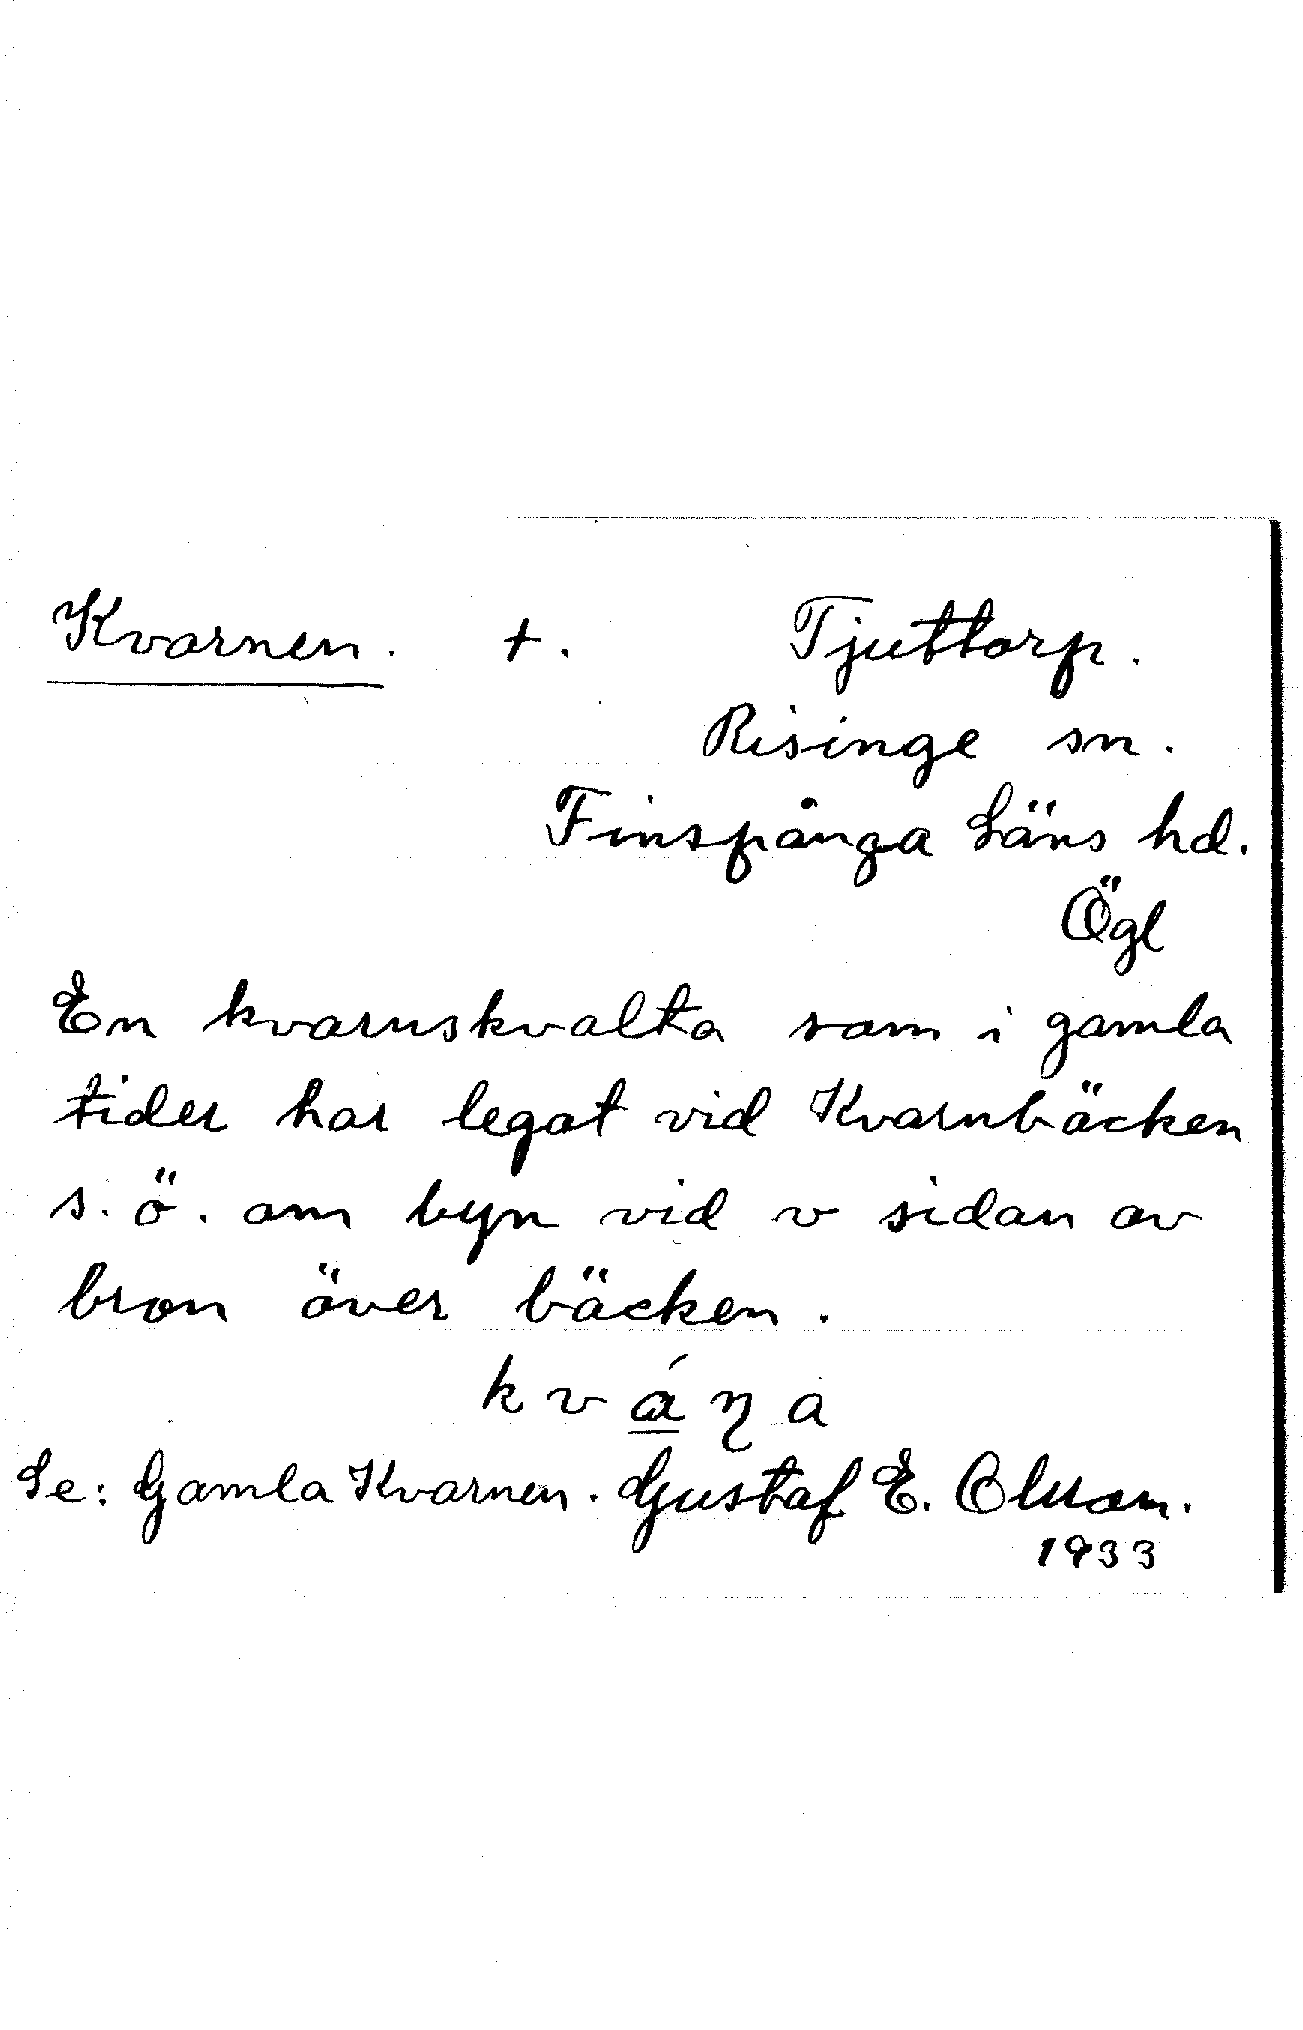 Kvarnen. +. Tjuttorp.
Risinge sn.
Finspånga Läns hd.
Ögl
En kvarnskvalta som i gamla
tider har legat vid Kvarnbäcken
s.ö. om byn vid v sidan av
bron över bäcken.
kváṉa
Se: Gamla Kvarnen. Gustaf E. Olsson.
1933